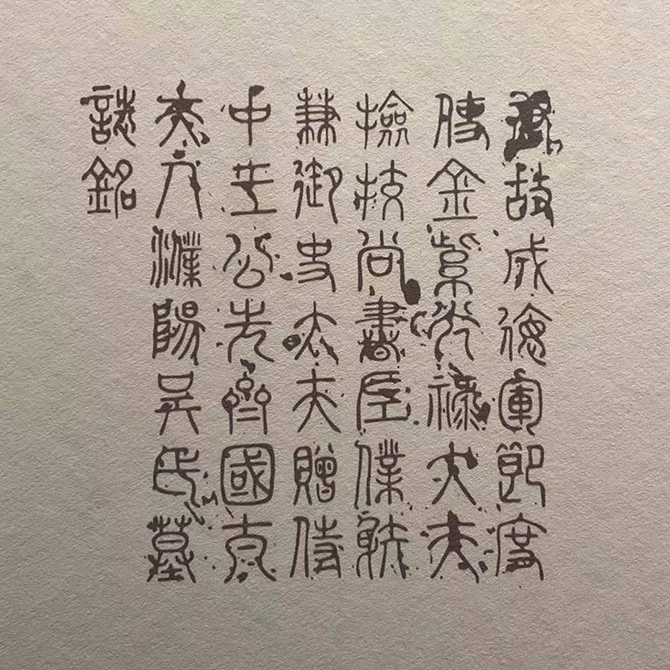 故海軍節度
使金紫光祿大夫
檢校尚書僕射
兼御史大夫贈侍
中公先齊國太
夫人濮陽吳氏墓
誌銘